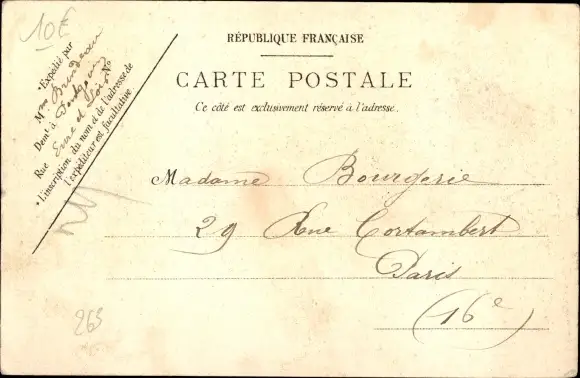 10€
RÉPUBLIQUE FRANÇAISE
CARTE POSTALE
Ce côté est exclusivement réservé à l'adresse.
Expédié par
Mme Brindeau
Demt à Pontgouin
Rue Eure et Loir No
L'inscription du nom et de l'adresse de
l'expéditeur est facultative.
Madame Bourgerie
29 Rue Cortambert
Paris
(16e
265